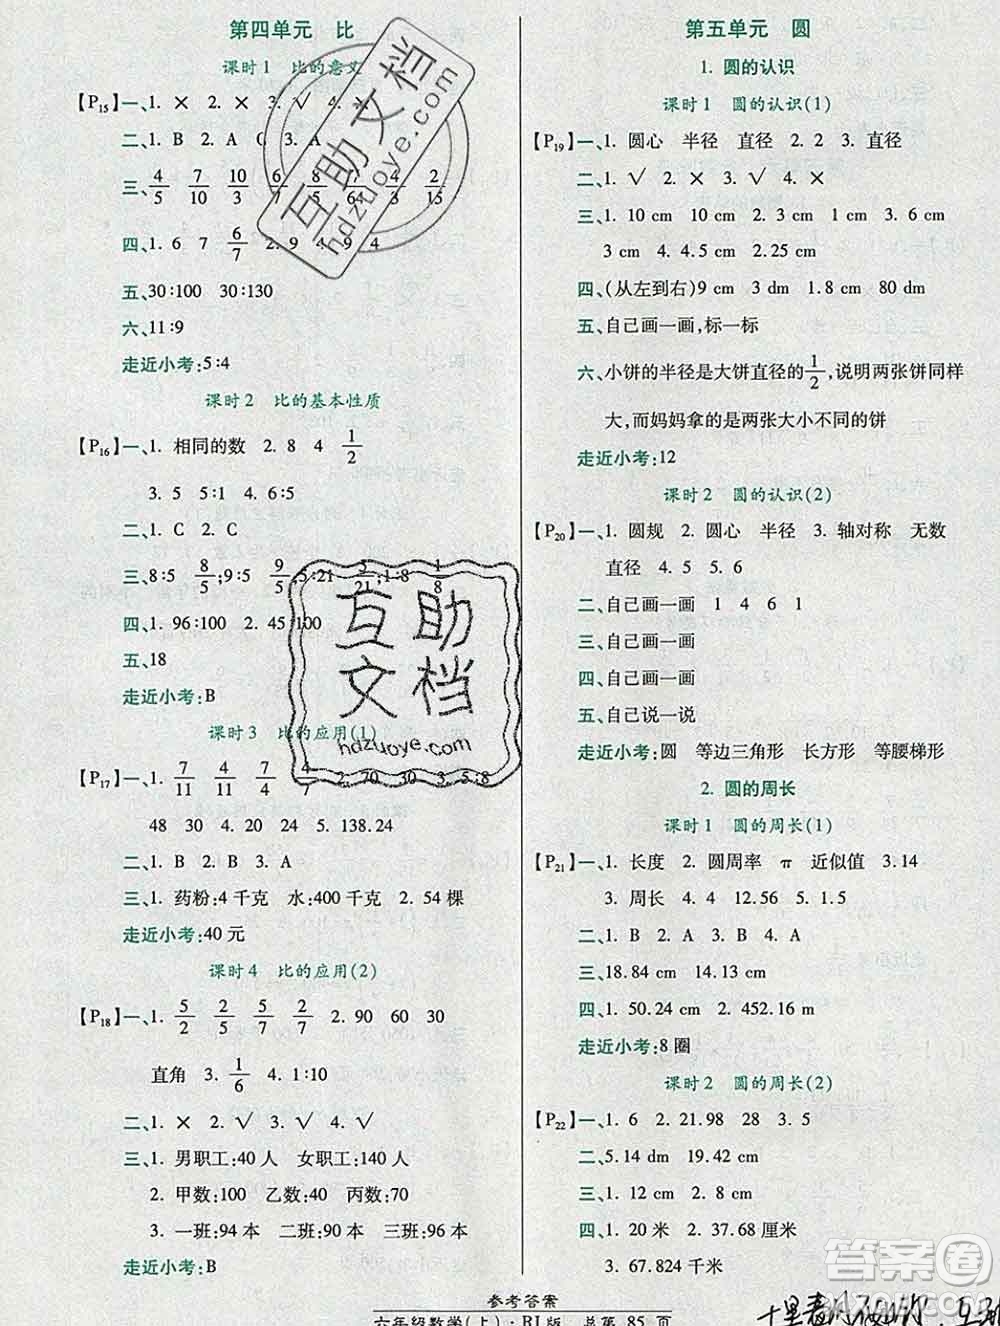 第四单元 比
课时1 比的意义
【P15】一、1. × 2. × 3. √ 4. ×
二、1. B 2. A
三、4/5 7/10 10/3
四、1. 6 7 6/7 2. 9 4 9 4
五、30∶100 30∶130
六、11∶9
走近小考:5∶4
课时2 比的基本性质
【P16】一、1. 相同的数 2. 8 4 1/2
3. 5 5∶1 4. 6∶5
二、1. C 2. C
三、8∶5 8/5;9∶5 9/5;5∶21 5/21;1∶8 1/8
四、1. 96∶100 2. 45∶100
五、18
走近小考:B
课时3 比的应用(1)
【P17】一、1. 7/11 4/11 7/4 4/7 2. 70 30 3. 5∶8
48 30 4. 20 24 5. 138.24
二、1. B 2. B 3. A
三、1. 药粉:4千克 水:400千克 2. 54棵
走近小考:40元
课时4 比的应用(2)
【P18】一、1. 5/2 2/5 5/7 2/7 2. 90 60 30
直角 3. 1/6 4. 1∶10
二、1. × 2. √ 3. √ 4. √
三、1. 男职工:40人 女职工:60人
2. 甲数:100 乙数:40 丙数:70
3. 一班:94本 二班:90本 三班:96本
走近小考:B
第五单元 圆
1. 圆的认识
课时1 圆的认识(1)
【P19】一、1. 圆心 半径 直径 2. 2 3. 直径
二、1. √ 2. × 3. √ 4. ×
三、1. 10 cm 10 cm 2. 3 cm 3. 6 cm
3 cm 4. 4.5 cm 2.25 cm
四、(从左到右)9 cm 3 dm 1.8 cm 80 dm
五、自己画一画,标一标
六、小饼的半径是大饼直径的1/2,说明两张饼同样
大,而妈妈拿的是两张大小不同的饼
走近小考:12
课时2 圆的认识(2)
【P20】一、1. 圆规 2. 圆心 半径 3. 轴对称 无数
直径 4. 5 5. 8
二、自己画一画 1 4 6 1
三、自己画一画
四、自己画一画
五、自己说一说
走近小考:圆 等边三角形 长方形 等腰梯形
2. 圆的周长
课时1 圆的周长(1)
【P21】一、1. 长度 2. 圆周率 π 近似值 3.14
3. 周长 4. 4 12.56 5. 1.5
二、1. B 2. A 3. B 4. A
三、18.84 cm 9.42 cm 14.13 cm
四、1. 50.24 cm 2. 452.16 m
走近小考:8圈
课时2 圆的周长(2)
【P22】一、1. 6 2. 21.98 28 3. 5
二、5.14 dm 19.42 cm
三、1. 12 cm 2. 9.42 cm
四、1. 20米 2. 37.68厘米
3. 67.824千米
参考答案
六年级数学(上)·RJ版 总第 85 页
互助文档
hdzuoye.com
互助
文档
hdzuoye.com
答案圈